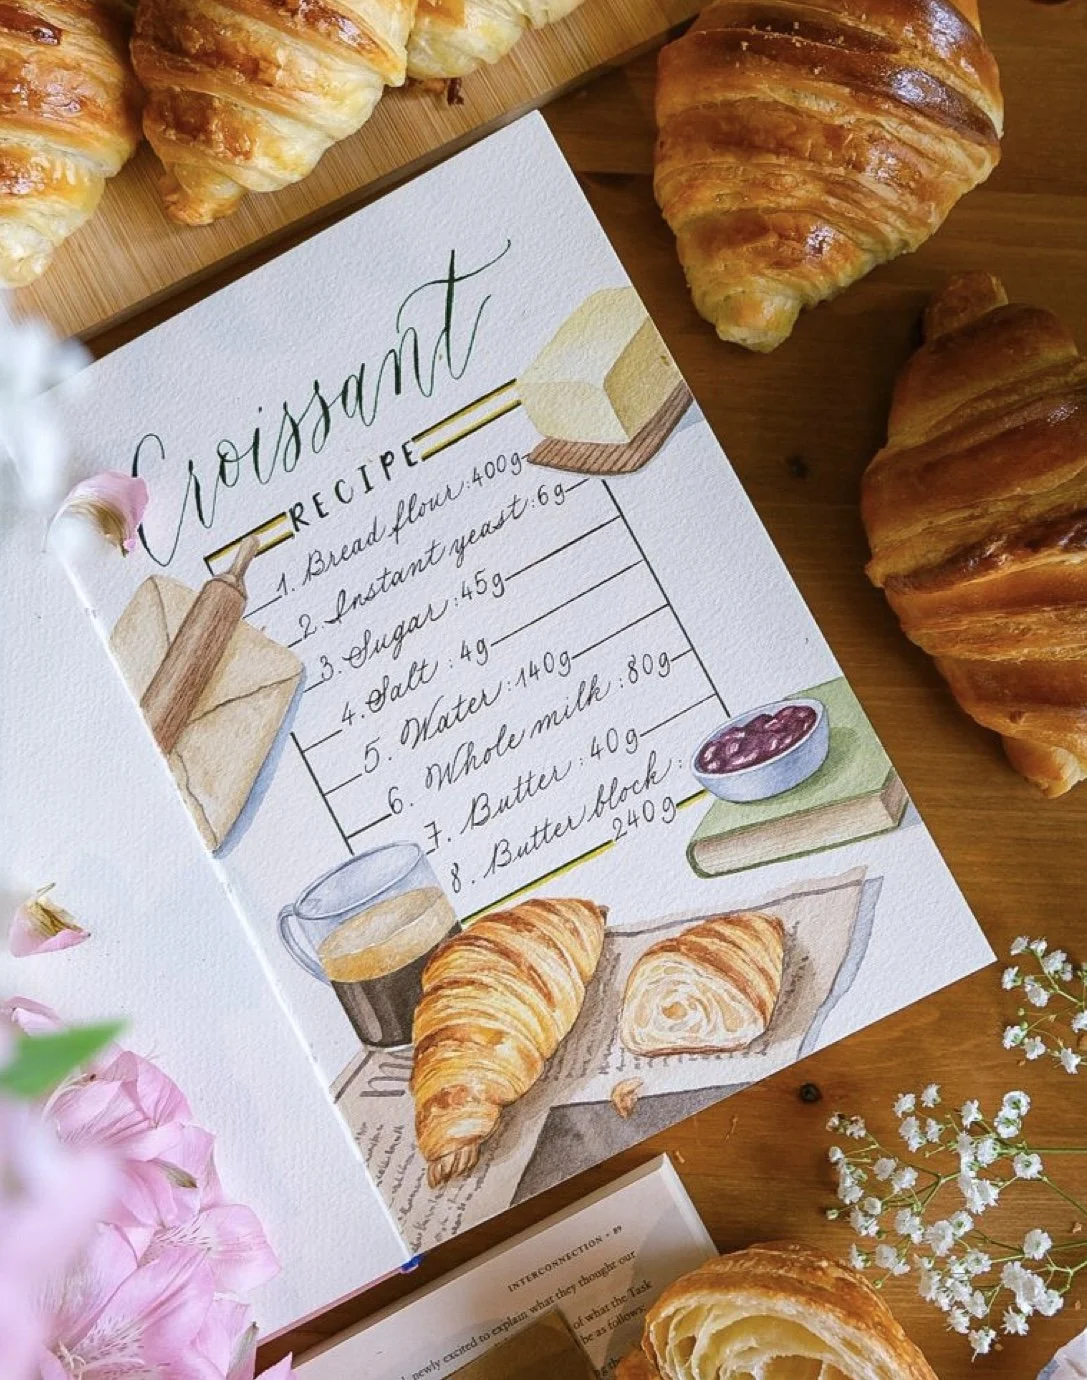 Croissant
RECIPE
1. Bread flour: 400g
2. Instant yeast: 6g
3. Sugar: 45g
4. Salt: 4g
5. Water: 140g
6. Whole milk: 80g
7. Butter: 40g
8. Butter block:
240g
INTERCONNECTION • 89
newly excited to explain what they thought our
of what the Task
be as follows: